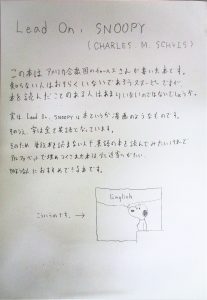 Lead On, SNOOPY
(CHARLES M. SCHULS)
この本は アメリカ合衆国のチャールズさんが書いた本です。
知らない人はおそらくいないであろうスヌーピーですが
本を読んだことのある人はあまりいないのではないでしょうか。
実は Lead On, SNOOPYは本というか漫画のようなものです。
そのうえ、字は全て英語でなっています。
そのため 普段本を読まない人や 英語の本を読んでみたいけれど
アルファベットで埋めつくされた本は
におすすめできる本です。
English
こういうのです。